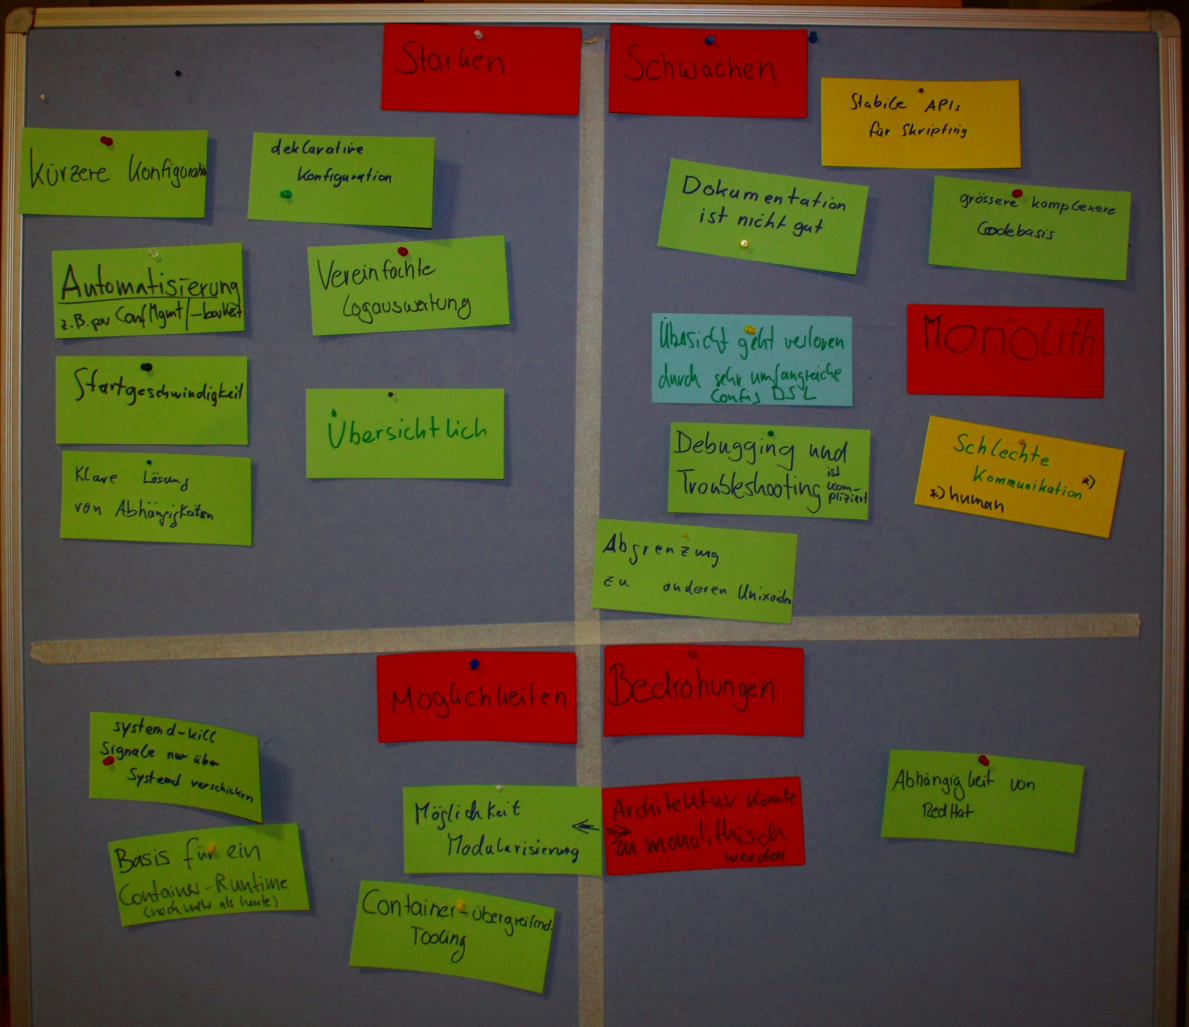 Stärken
kürzere Konfiguration
deklarative
Konfiguration
Automatisierung
z.B. per ConfMgmt/-barkeit
Vereinfachte
Logauswertung
Startgeschwindigkeit
Übersichtlich
Klare Lösung
von Abhängigkeiten
Schwächen
Stabile APIs
für Skripting
Dokumentation
ist nicht gut
grössere komplexere
Codebasis
Übersicht geht verloren
durch sehr umfangreiche
Config DSL
Monolith
Debugging und
Troubleshooting ist
kom-
pliziert
Schlechte
Kommunikation *)
*) human
Abgrenzung
zu anderen Unixoiden
Möglichkeiten
systemd-kill
Signale nur über
Systemd verschicken
Möglichkeit
Modularisierung
Basis für ein
Container-Runtime
(noch mehr als heute)
Container-übergreifend.
Tooling
Bedrohungen
Architektur könnte
zu monolithisch
werden
Abhängigkeit von
RedHat